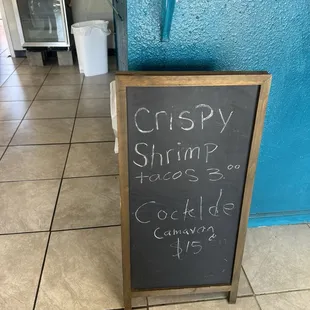 Crispy
Shrimp
tacos 3.00
Cocktde
Camavan
$15